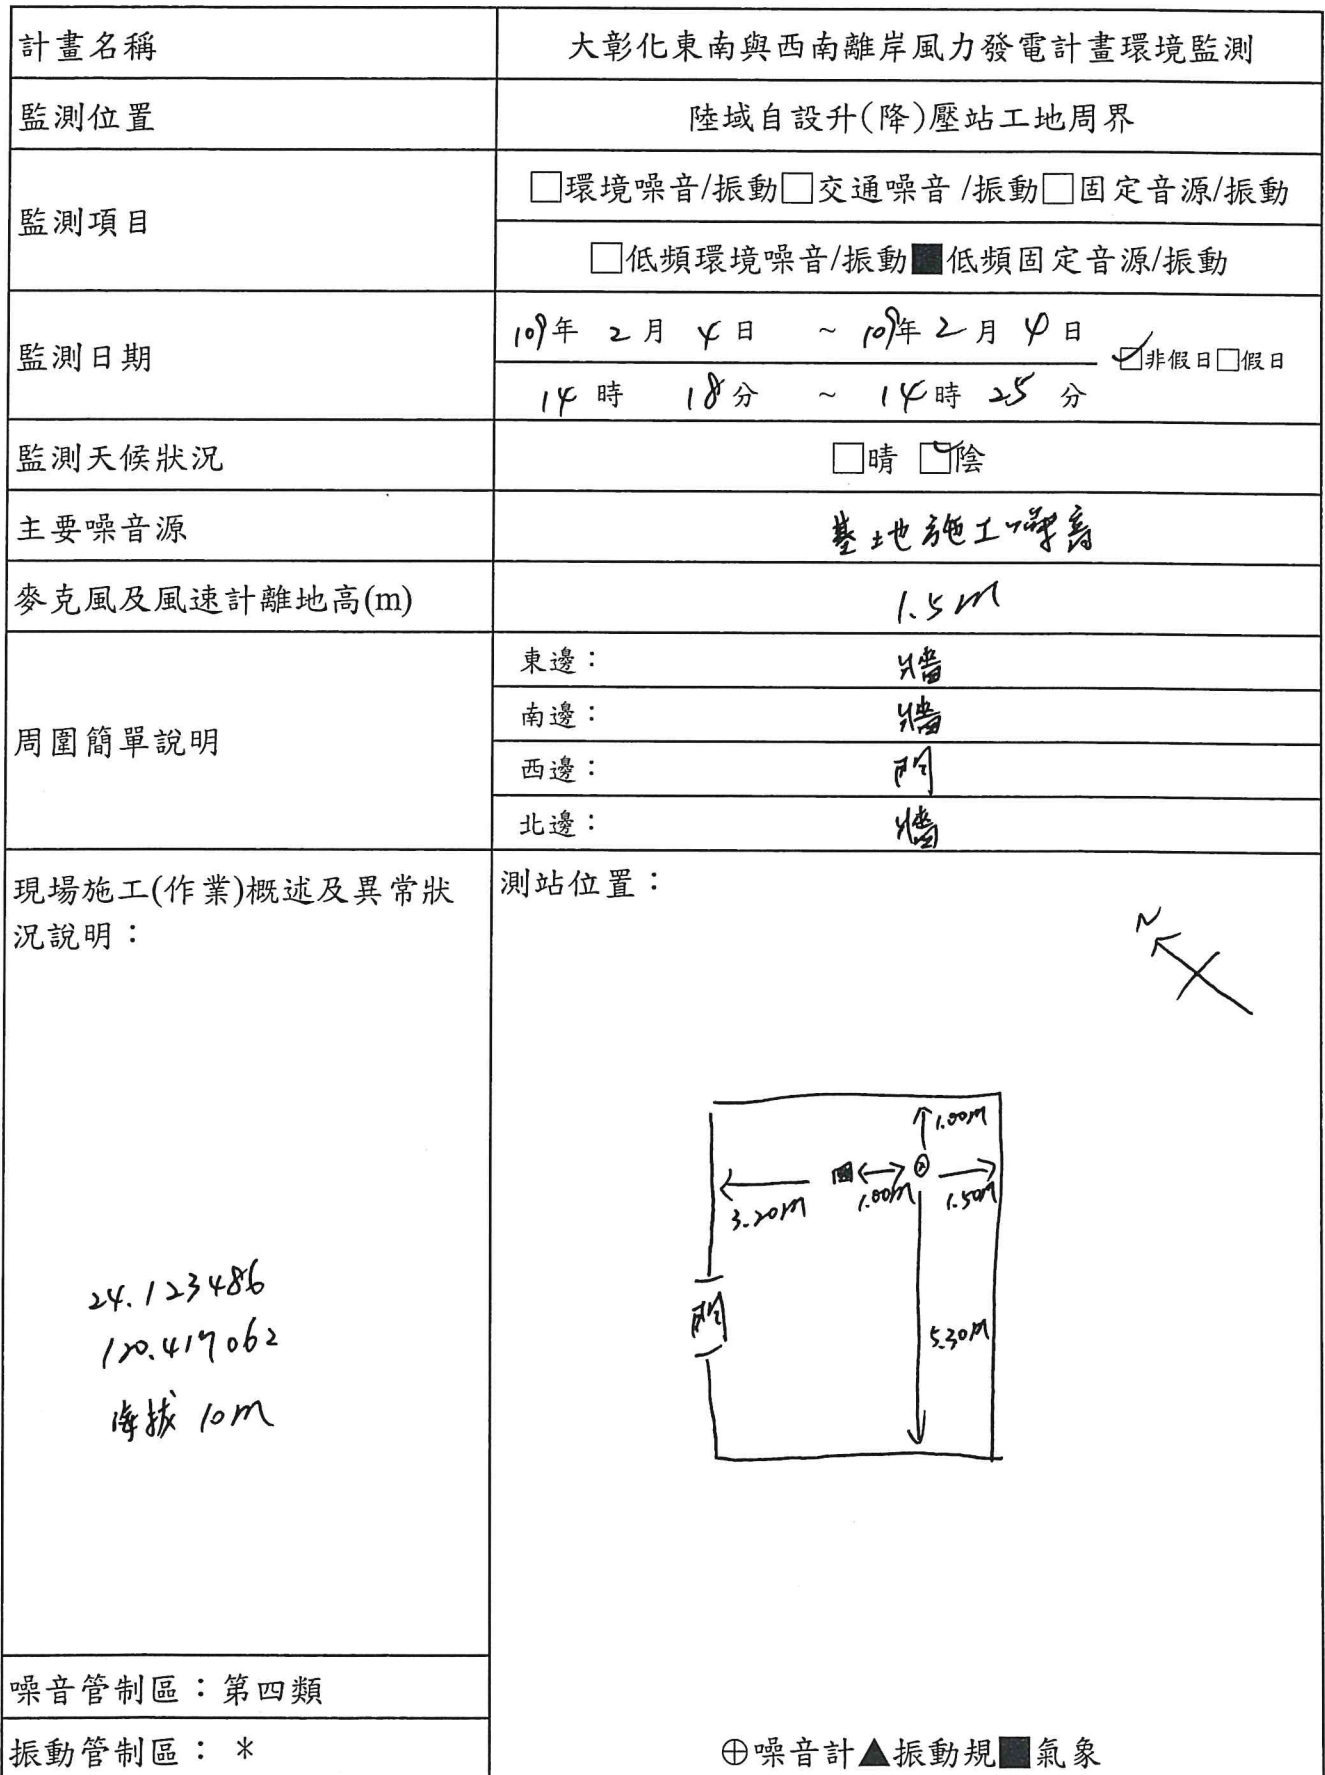 計畫名稱
大彰化東南與西南離岸風力發電計畫環境監測
監測位置
陸域自設升(降)壓站工地周界
監測項目
□環境噪音/振動□交通噪音 /振動□固定音源/振動
□低頻環境噪音/振動■低頻固定音源/振動
監測日期
109年 2月 4日 ~ 109年 2月 4日
☑非假日□假日
14時 18分 ~ 14時 25分
監測天候狀況
□晴 ☑陰
主要噪音源
基地施工噪音
麥克風及風速計離地高(m)
1.5m
周圍簡單說明
東邊： 牆
南邊： 牆
西邊： 門
北邊： 牆
現場施工(作業)概述及異常狀
況說明：
24.123486
120.417062
海拔 10m
測站位置：
N
1.00m
3.20m
1.00m
1.50m
門
5.30m
噪音管制區：第四類
振動管制區： *
⊕噪音計▲振動規■氣象